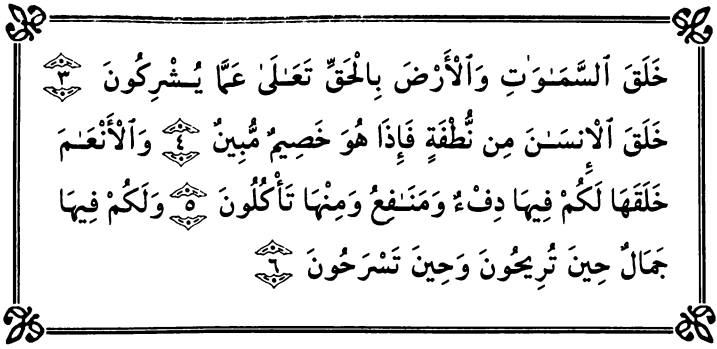 خَلَقَ ٱلسَّمَـٰوَٰتِ وَٱلْأَرْضَ بِٱلْحَقِّ تَعَـٰلَىٰ عَمَّا يُشْرِكُونَ ٣
خَلَقَ ٱلْإِنسَـٰنَ مِن نُّطْفَةٍ فَإِذَا هُوَ خَصِيمٌ مُّبِينٌ ٤ وَٱلْأَنْعَـٰمَ
خَلَقَهَا لَكُمْ فِيهَا دِفْءٌ وَمَنَـٰفِعُ وَمِنْهَا تَأْكُلُونَ ٥ وَلَكُمْ فِيهَا
جَمَالٌ حِينَ تُرِيحُونَ وَحِينَ تَسْرَحُونَ ٦